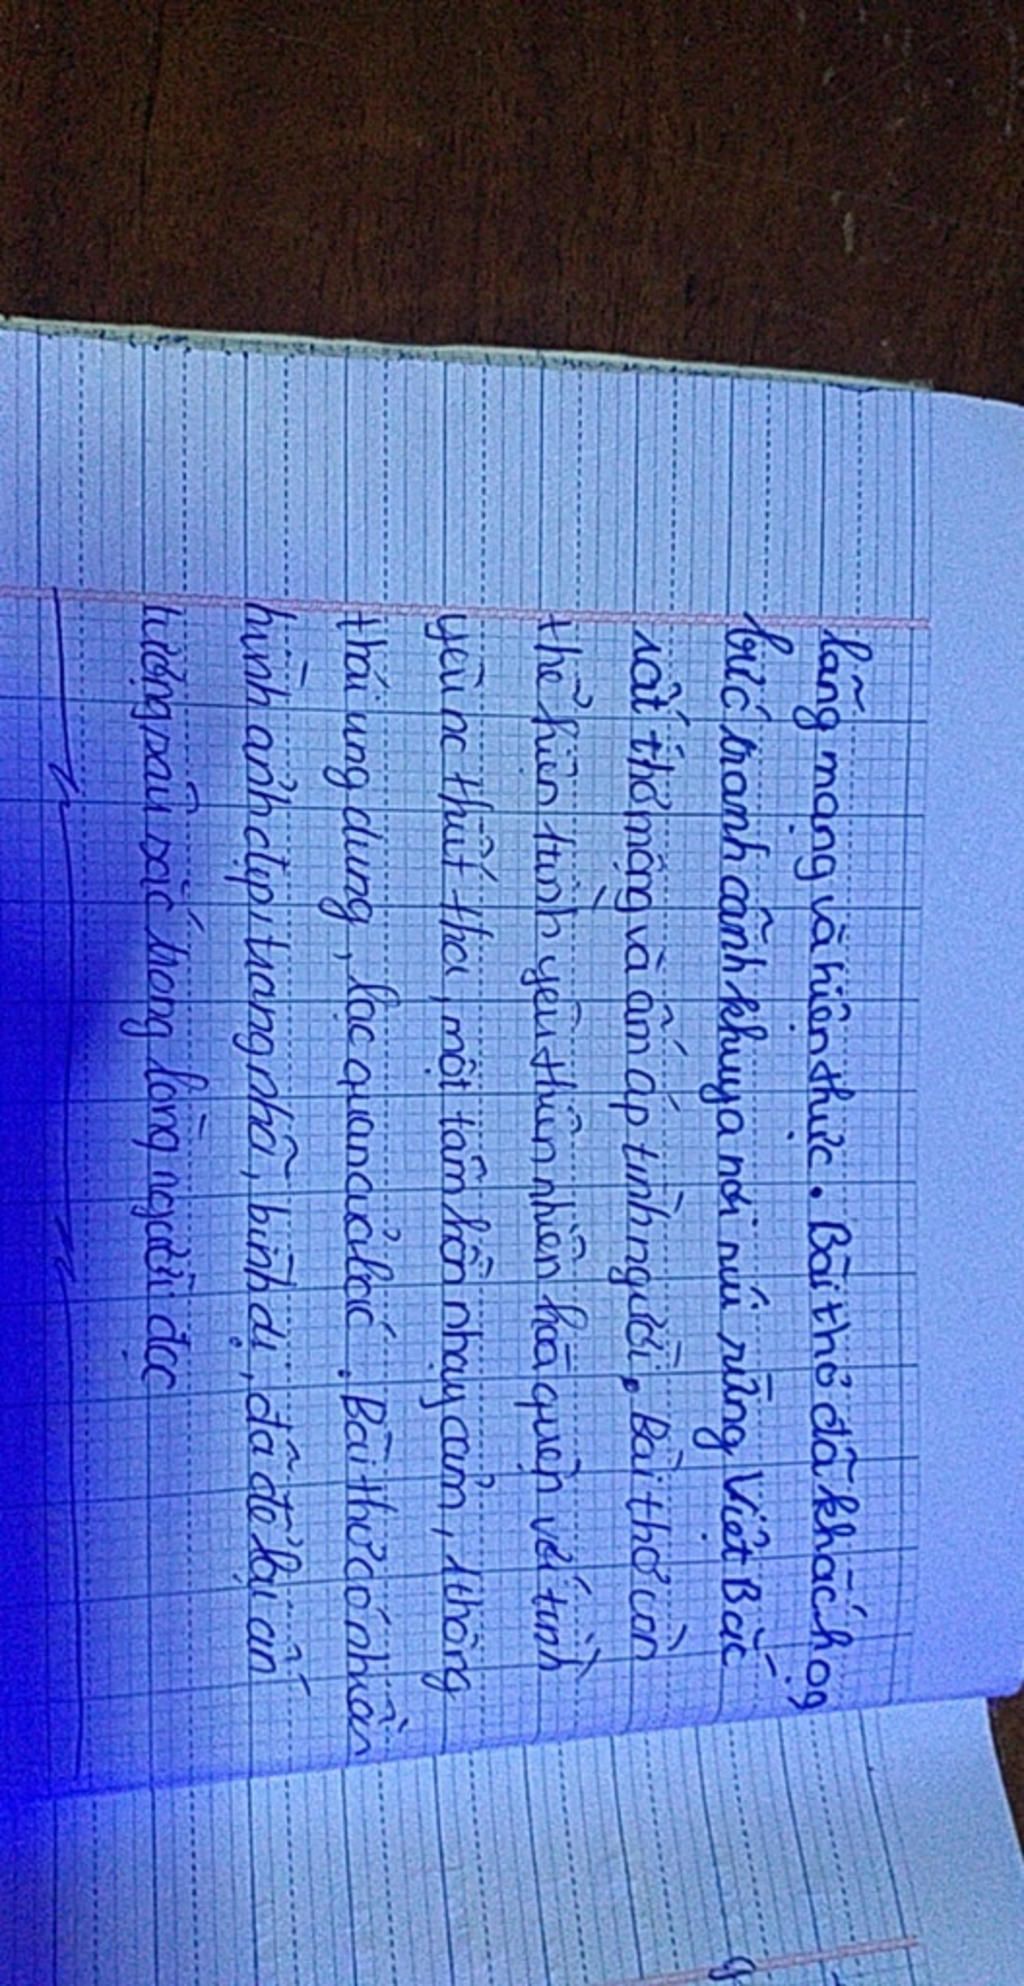 lãng mạng và hiện thực. Bài thơ đã khắc họg
bức tranh cảnh khuya nơi núi rừng Việt Bắc
rất thơ mộng và ấm áp tình người. Bài thơ còn
thể hiện tình yêu thiên nhiên hòa quện với tình
yêu nc thiết tha, một tâm hồn nhạy cảm, 1 thông
thái ung dung, lạc quan của bác. Bài thơ có nhiều
hình ảnh đẹp, trang nhã, bình dị, đã để lại ấn
tượng sâu sắc trong lòng người đọc
g